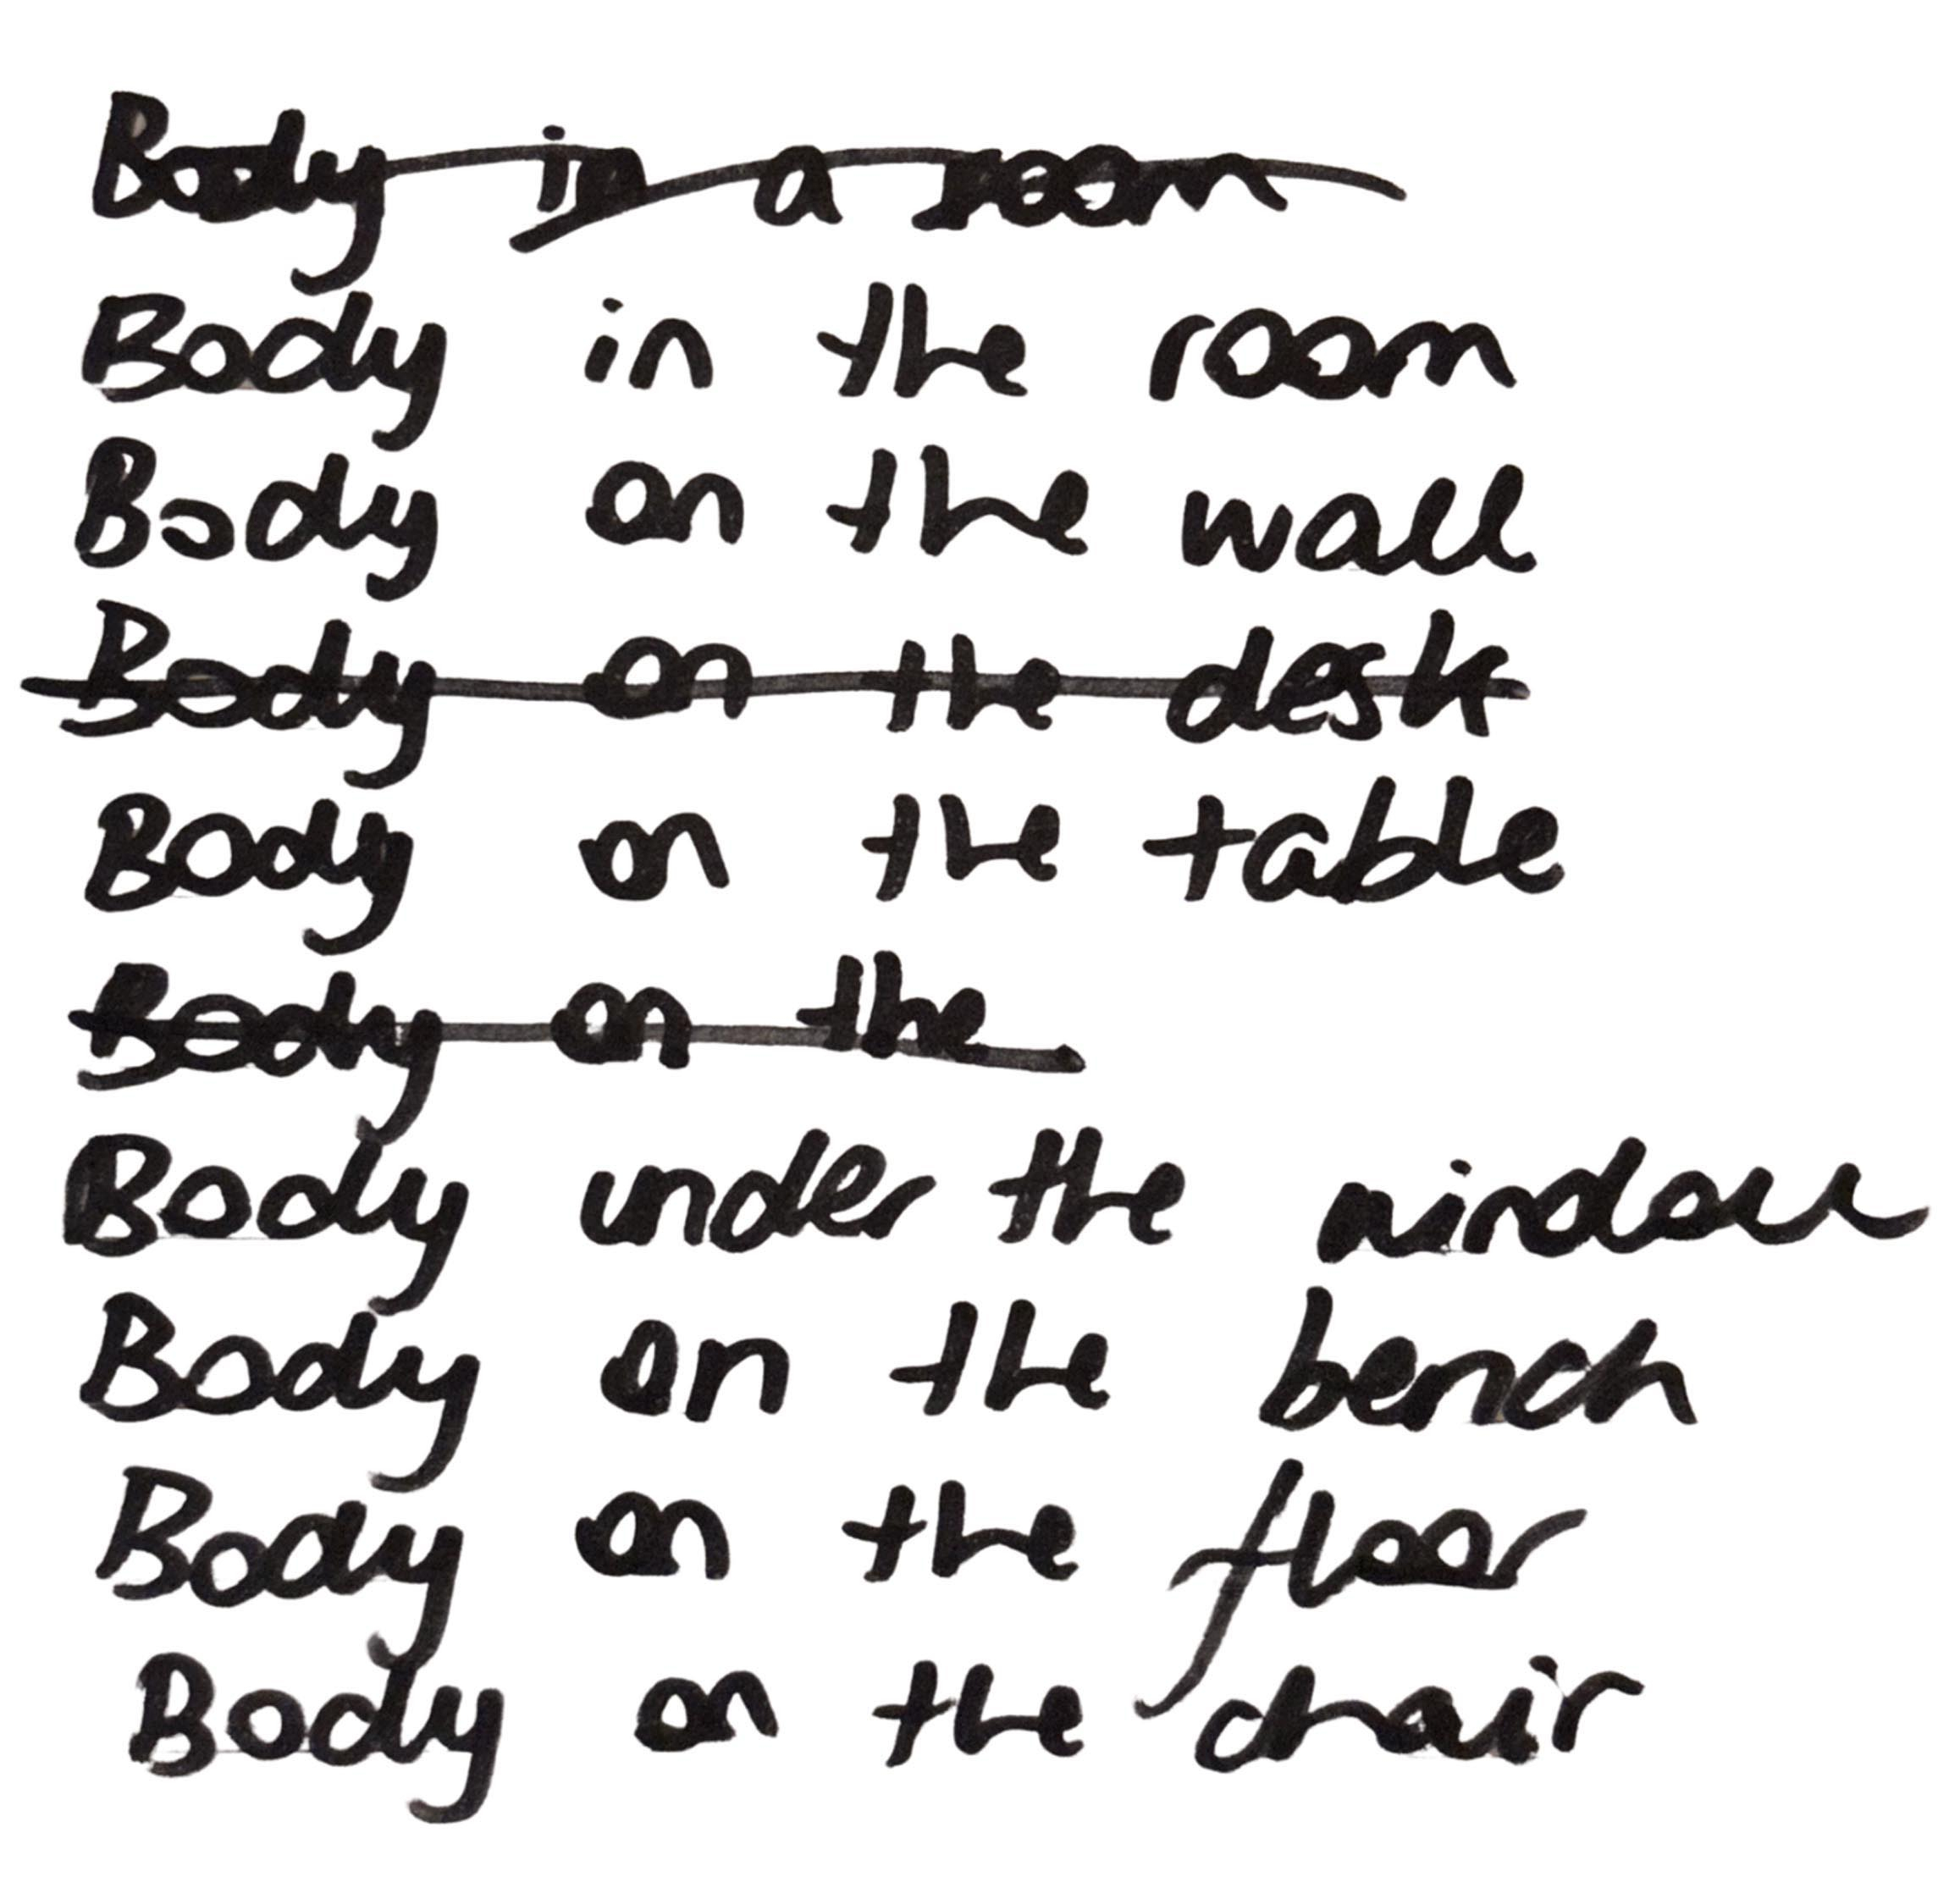 Body in a room
Body in the room
Body on the wall
Body on the desk
Body on the table
Body on the
Body under the window
Body on the bench
Body on the floor
Body on the chair